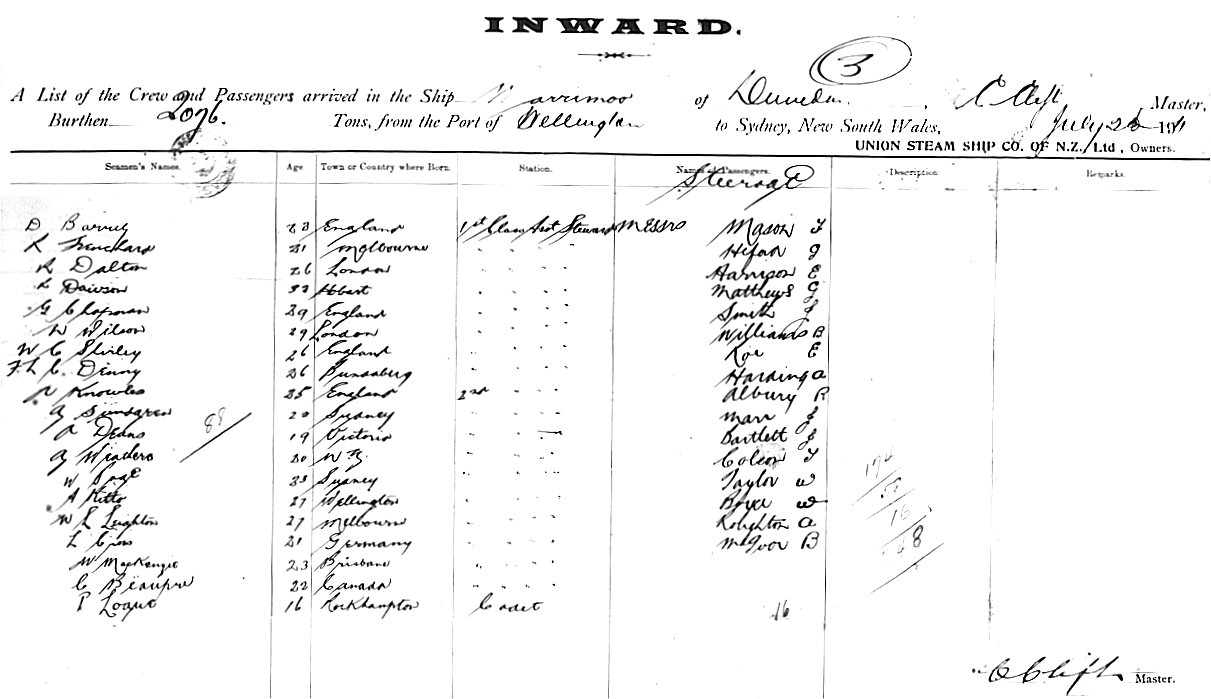 INWARD.
3
A List of the Crew and Passengers arrived in the Ship Warrimoo of Dunedin. C Clift Master,
Burthen 2076. Tons, from the Port of Wellington to Sydney, New South Wales, July 1911
UNION STEAM SHIP CO. OF N.Z./Ltd, Owners.
Seamen's Names. Age Town or Country where Born. Station. Names of Passengers. Description Remarks.
Steerage
D 23 England 1st Class Asst Steward MESSRS Mason T
21 Melbourne J
R Dalton 26 London " " " " Harrison E
Dawson 22 Hobart " " " " Matthews G
G Chapman 29 England " " " " Smith J
W Wilson 29 London " " " " Williams B
W C Shirley 26 England " " " " Roe E
F L C Denny 26 Bundaberg " " " " Harding A
Knowles 25 England 2nd " " " Albury R
88
20 Sydney " " " " Marr J
A Deans 19 Victoria " " " Bartlett J
20 N Z " " " " Colson T
W Page 23 Sydney " " " " Taylor W
A Kitto 27 Wellington " " " " W
W L Leighton 27 Melbourne " " " " Roughton A
21 Germany " " " " McIvor B
W MacKenzie 23 Brisbane " " " "
C Beaupre 22 Canada " " " "
P Logue 16 Rockhampton Cadet
174
16
16
C Clift Master.